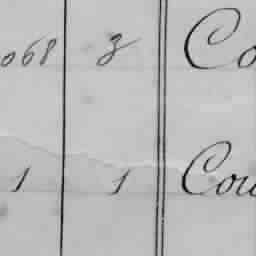 068 3 Co
1 1 Cou